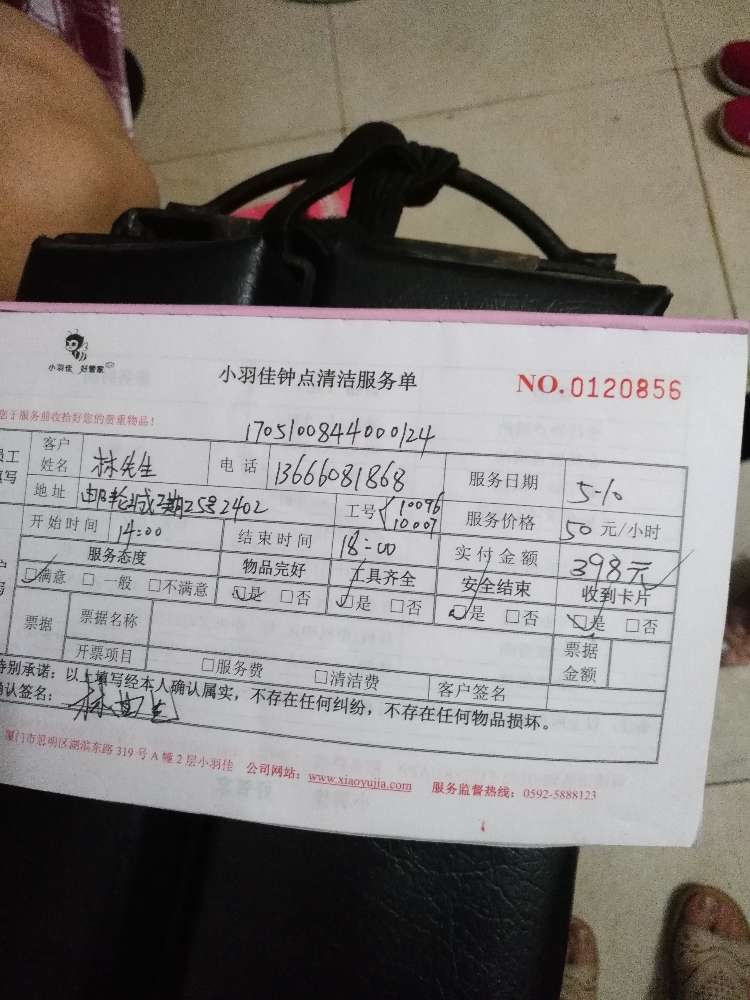 小羽佳 好管家
小羽佳钟点清洁服务单
NO.0120856
您于服务前收拾好您的贵重物品!
170510084400124
客户姓名 林先生 电话 13666081868 服务日期 5-10
地址 邮轮城二期25号2402 工号 10096 10007 服务价格 50 元/小时
开始时间 14:00 结束时间 18:00 实付金额 398元
服务态度 物品完好 工具齐全 安全结束 收到卡片
☑满意 □一般 □不满意 ☑是 □否 ☑是 □否 ☑是 □否 ☑是 □否
票据 票据名称 票据金额
开票项目 □服务费 □清洁费 客户签名
特别承诺:以上填写经本人确认属实,不存在任何纠纷,不存在任何物品损坏。
确认签名:
厦门市思明区湖滨东路 319 号 A 幢 2 层小羽佳 公司网站:www.xiaoyujia.com 服务监督热线:0592-5888123